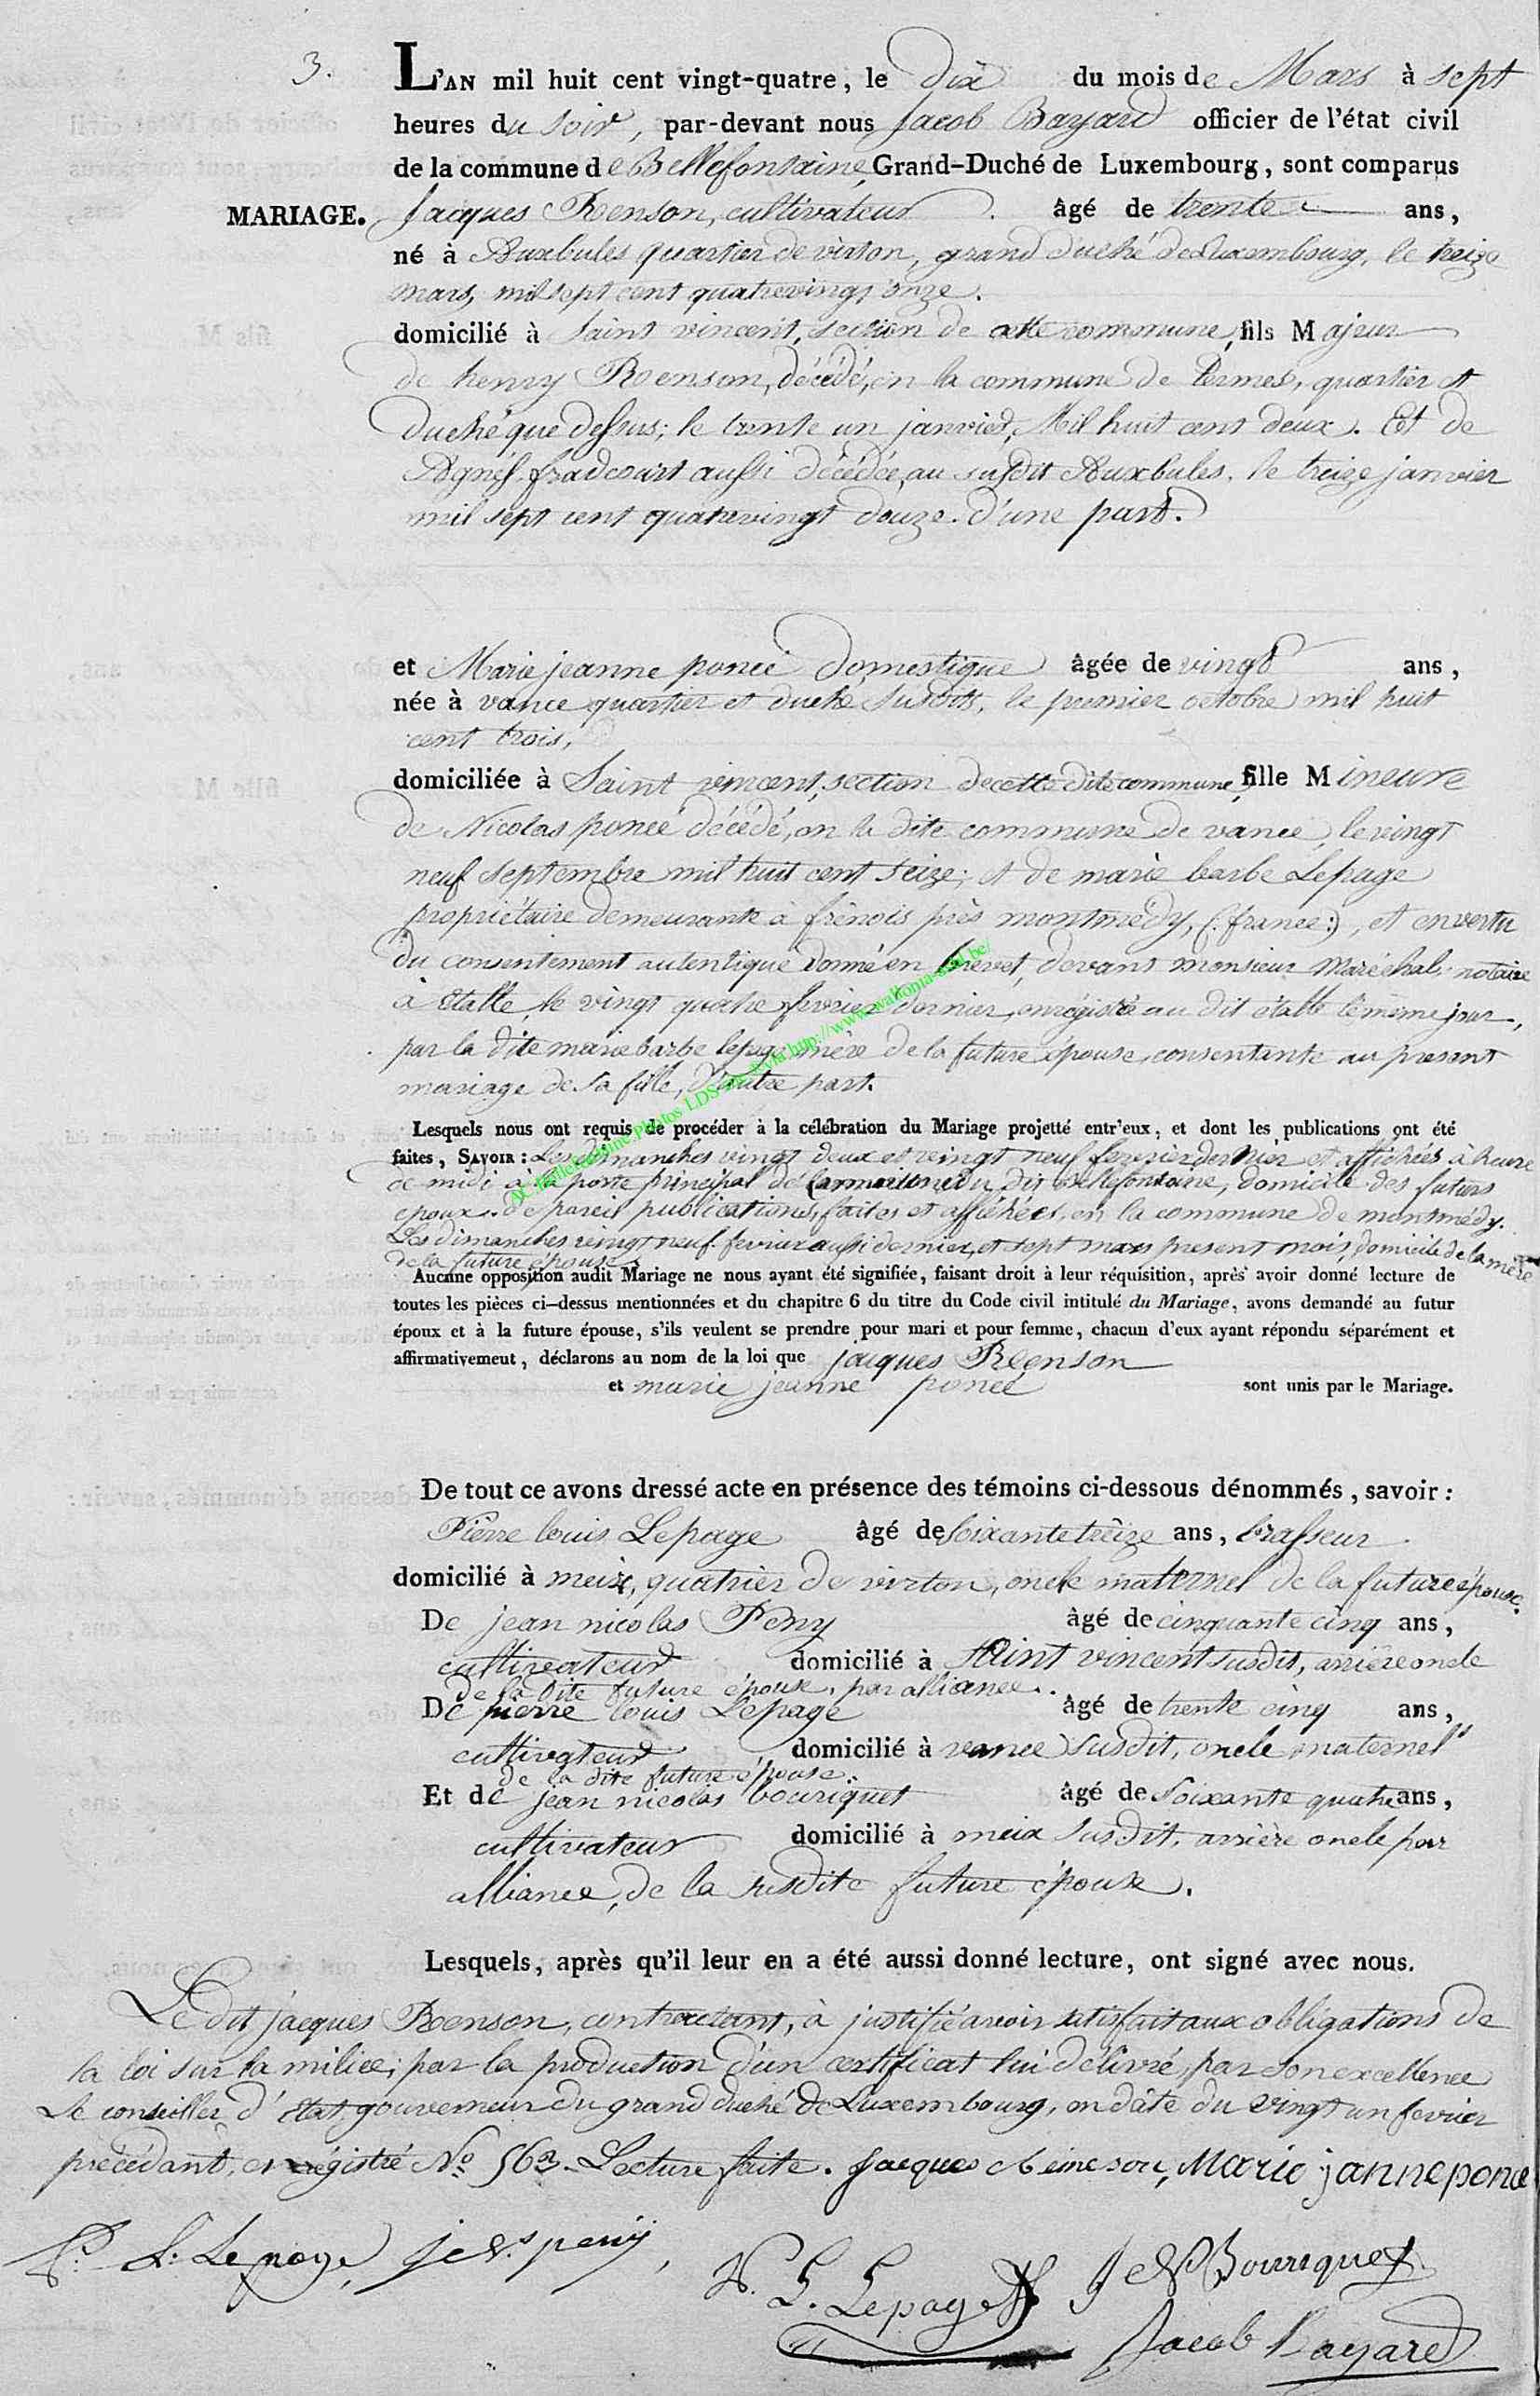 3.
L'AN mil huit cent vingt-quatre, le dix du mois de Mars à sept
heures du soir, par-devant nous Jacob Bayard officier de l'état civil
de la commune de Bellefontaine, Grand-Duché de Luxembourg, sont comparus
MARIAGE. Jacques Renson, cultivateur âgé de trente ans,
né à Buxbules quartier de virton, grand duché de Luxembourg, le treize
mars, mil sept cent quatrevingt onze.
domicilié à Saint vincent, section de cette commune, fils Majeur
de henry Renson, décédé, en la commune de termes, quartier et
duché que dessus; le trente un janvier, Mil huit cent deux. Et de
Agnès fradcourt aussi décédée, au susdit Buxbules, le treize janvier
mil sept cent quatrevingt douze. d'une part.
et Marie jeanne poncé domestique âgée de vingt ans,
née à vance quartier et duché susdits, le premier octobre mil huit
cent trois,
domiciliée à Saint vincent, section de cette dite commune, fille Mineure
de Nicolas poncé décédé, en la dite commune de vance, le vingt
neuf septembre mil huit cent seize; et de marie barbe Lepage
propriétaire demeurante à frénois près montmédy, (:france:), et en vertu
du consentement autentique donné en brevet, devant monsieur Maréchal, notaire
à Etalle, le vingt quatre fevrier dernier, enrégistré au dit étalle le même jour,
par la dite marie barbe lepage mère de la future épouse, consentante au present
mariage de sa fille, d'autre part.
AC Bellefontaine Photos LDS via http://www.wallonia-asbl.be/
Lesquels nous ont requis de procéder à la célébration du Mariage projetté entr'eux, et dont les publications ont été
faites, SAVOIR: Les dimanches vingt deux et vingt neuf fevrier dernier et affichées à heure
de midi à la porte principal de la maison du dit Bellefontaine, domicile des futurs
epoux. de pareil publications, faites et affichées, en la commune de montmédy.
Les dimanches vingt neuf fevrier aussi dernier, et sept mars present mois, domicile de la mère
de la future épouse.
Aucune opposition audit Mariage ne nous ayant été signifiée, faisant droit à leur réquisition, après avoir donné lecture de
toutes les pièces ci-dessus mentionnées et du chapitre 6 du titre du Code civil intitulé du Mariage, avons demandé au futur
époux et à la future épouse, s'ils veulent se prendre pour mari et pour femme, chacun d'eux ayant répondu séparément et
affirmativemeut, déclarons au nom de la loi que jacques Renson
et marie jeanne poncé sont unis par le Mariage.
De tout ce avons dressé acte en présence des témoins ci-dessous dénommés, savoir:
Pierre louis Lepage âgé de soixante treize ans, brasseur
domicilié à meix, quartier de virton, oncle maternel de la future épouse.
De jean nicolas Peny âgé de cinquante cinq ans,
cultivateur domicilié à Saint vincent susdit, arrière oncle
de la dite future épouse, par alliance.
De pierre louis Lepage âgé de trente cinq ans,
cultivateur domicilié à vance susdit, oncle maternel
de la dite future épouse.
Et de jean nicolas bouriquet âgé de soixante quatre ans,
cultivateur domicilié à meix susdit, arrière oncle par
alliance, de la susdite future épouse.
Lesquels, après qu'il leur en a été aussi donné lecture, ont signé avec nous.
Le dit jacques Renson, contractant, à justifié avoir satisfait aux obligations de
la loi sur la milice; par la production d'un certificat lui délivré, par son excellence
Le conseiller d'état, gouverneur du grand duché de Luxembourg, en date du vingt un fevrier
précédant, enrégistré No 563. Lecture faite. Jacques Reinson, Marie janneponce
P. L. Lepage, J N.s peny,
P. L. Lepage J N Bouriquet
Jacob Bayard